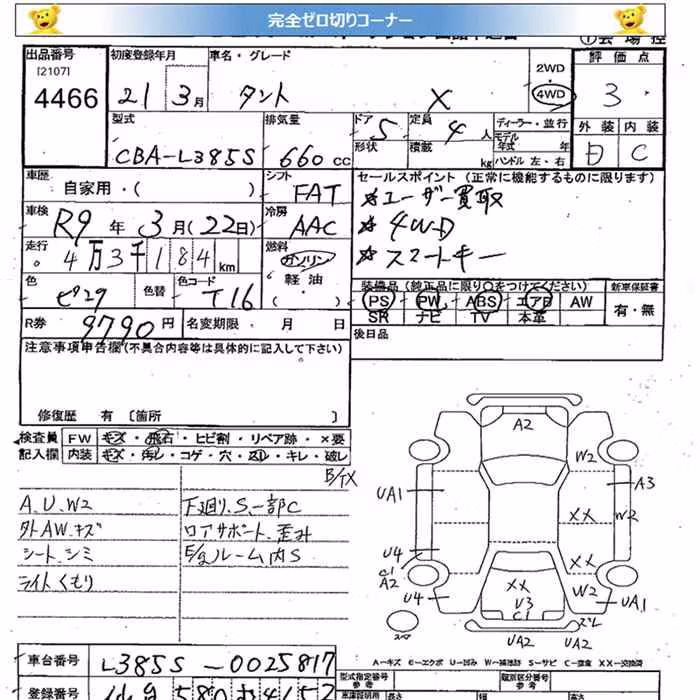 完全ゼロ切りコーナー
出品番号
[2107]
4466
初度登録年月
21 3月
車名・グレード
タント X
2WD
4WD
評価点
3
外装 内装
D C
型式
CBA-L385S
排気量
660 cc
ドア 5
形状
定員 4 人
積載 kg
ディーラー・並行
モデル
年式 年
ハンドル 左・右
車歴
自家用・( )
シフト
FAT
セールスポイント (正常に機能するものに限ります)
*ユーザー買取
*4W-D
*スマートキー
車検
R9 年 3月(22日)
冷房
AAC
走行
4万3千184 km
燃料
ガソリン
軽油
( )
色
ピンク
色替
色コード
T16
装備品 (純正品に限り○をつけてください)
PS PW ABS エアB AW
SR ナビ TV 本革
新車保証書
有・無
R券 9790 円
名変期限 ・ 月 日
後日品
注意事項申告欄 (不具合内容等は具体的に記入して下さい)
修復歴 有 [箇所 ]
検査員
記入欄
FW キズ・飛石・ヒビ割・リペア跡・×要
内装 キズ・汚レ・コゲ・穴・スレ・キレ・破レ
A.U.W2
外AW.キズ
シート.シミ
ライトくもり
下廻り.S.一部C
ロアサポート.歪み
E/gルーム内S
A2
W2
UA1
A3
XX
W2
U4
XX
C1
A2
W2
U4
XX
U3
C1
UA1
スレ
UA2 UA2
A-キズ E-エクボ U-凹み W-補修跡 S-サビ C-腐食 XX-交換済
車台番号
L385S-0025817
型式指定番号
類別区分番号
登録番号